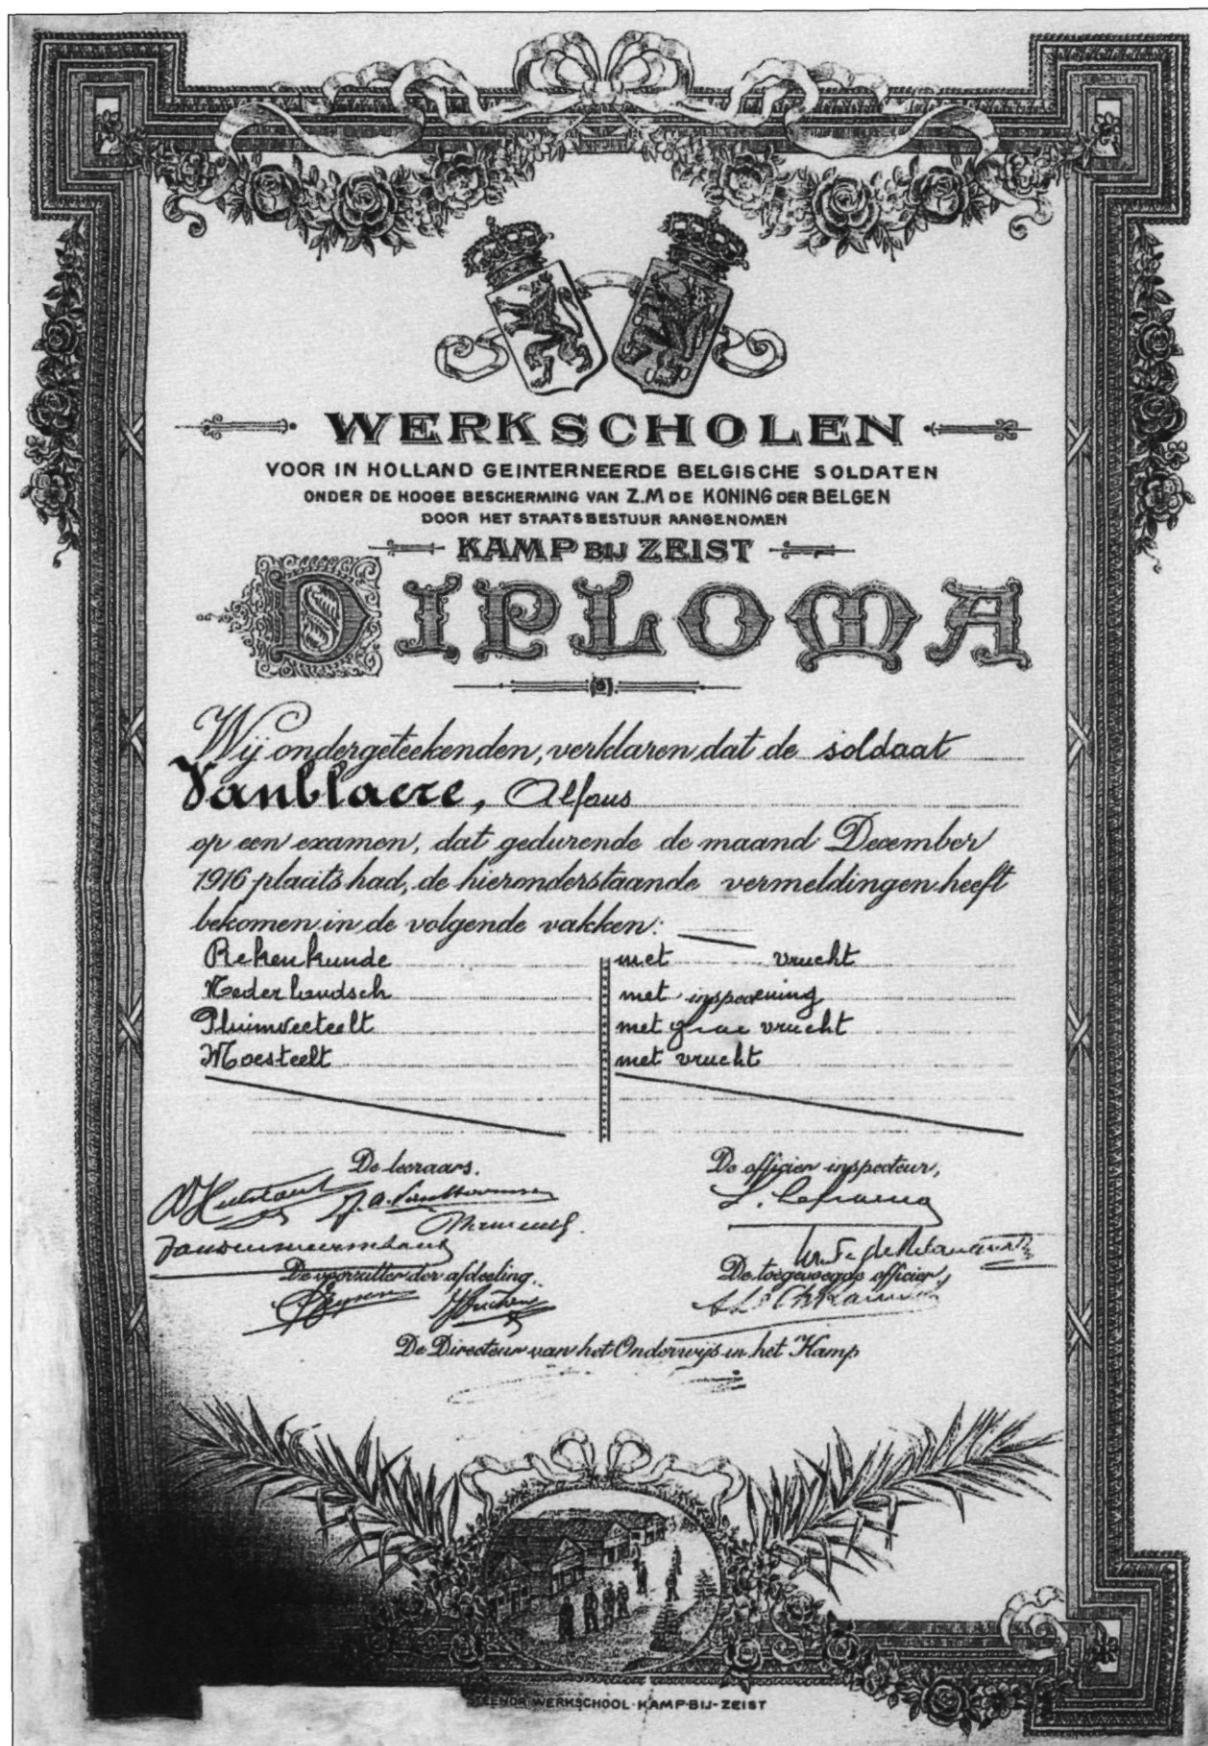 WERKSCHOLEN
VOOR IN HOLLAND GEINTERNEERDE BELGISCHE SOLDATEN
ONDER DE HOOGE BESCHERMING VAN Z.M DE KONING DER BELGEN
DOOR HET STAATSBESTUUR AANGENOMEN
KAMP BIJ ZEIST
DIPLOMA
Wij ondergeteekenden, verklaren dat de soldaat
Vanblaere, Alfons
op een examen, dat gedurende de maand December
1916 plaats had, de hieronderstaande vermeldingen heeft
bekomen in de volgende vakken:
Rekenkunde met vrucht
Nederlandsch met
Pluimveeteelt met vrucht
Moesteelt met vrucht
De leeraars. De officier inspecteur,
De voorzitter der afdeeling. De toegevoegde officier,
De Directeur van het Onderwijs in het Kamp
WERKSCHOOL-KAMP-BIJ-ZEIST